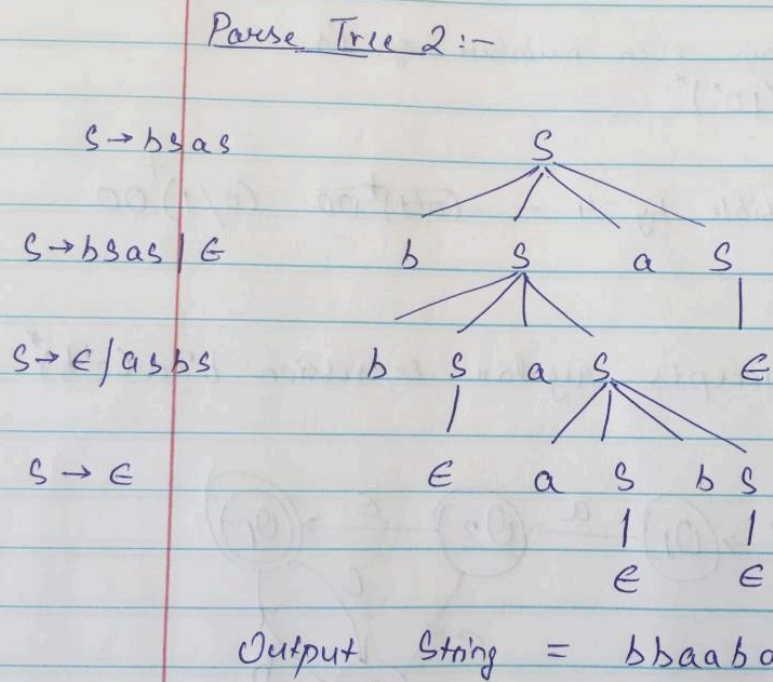 Parse Tree 2:-
S → bsas S
S → bsas | ε b S a S
S → ε/asbs b S a S ε
S → ε ε a S b S
ε ε
Output String = bbaaba